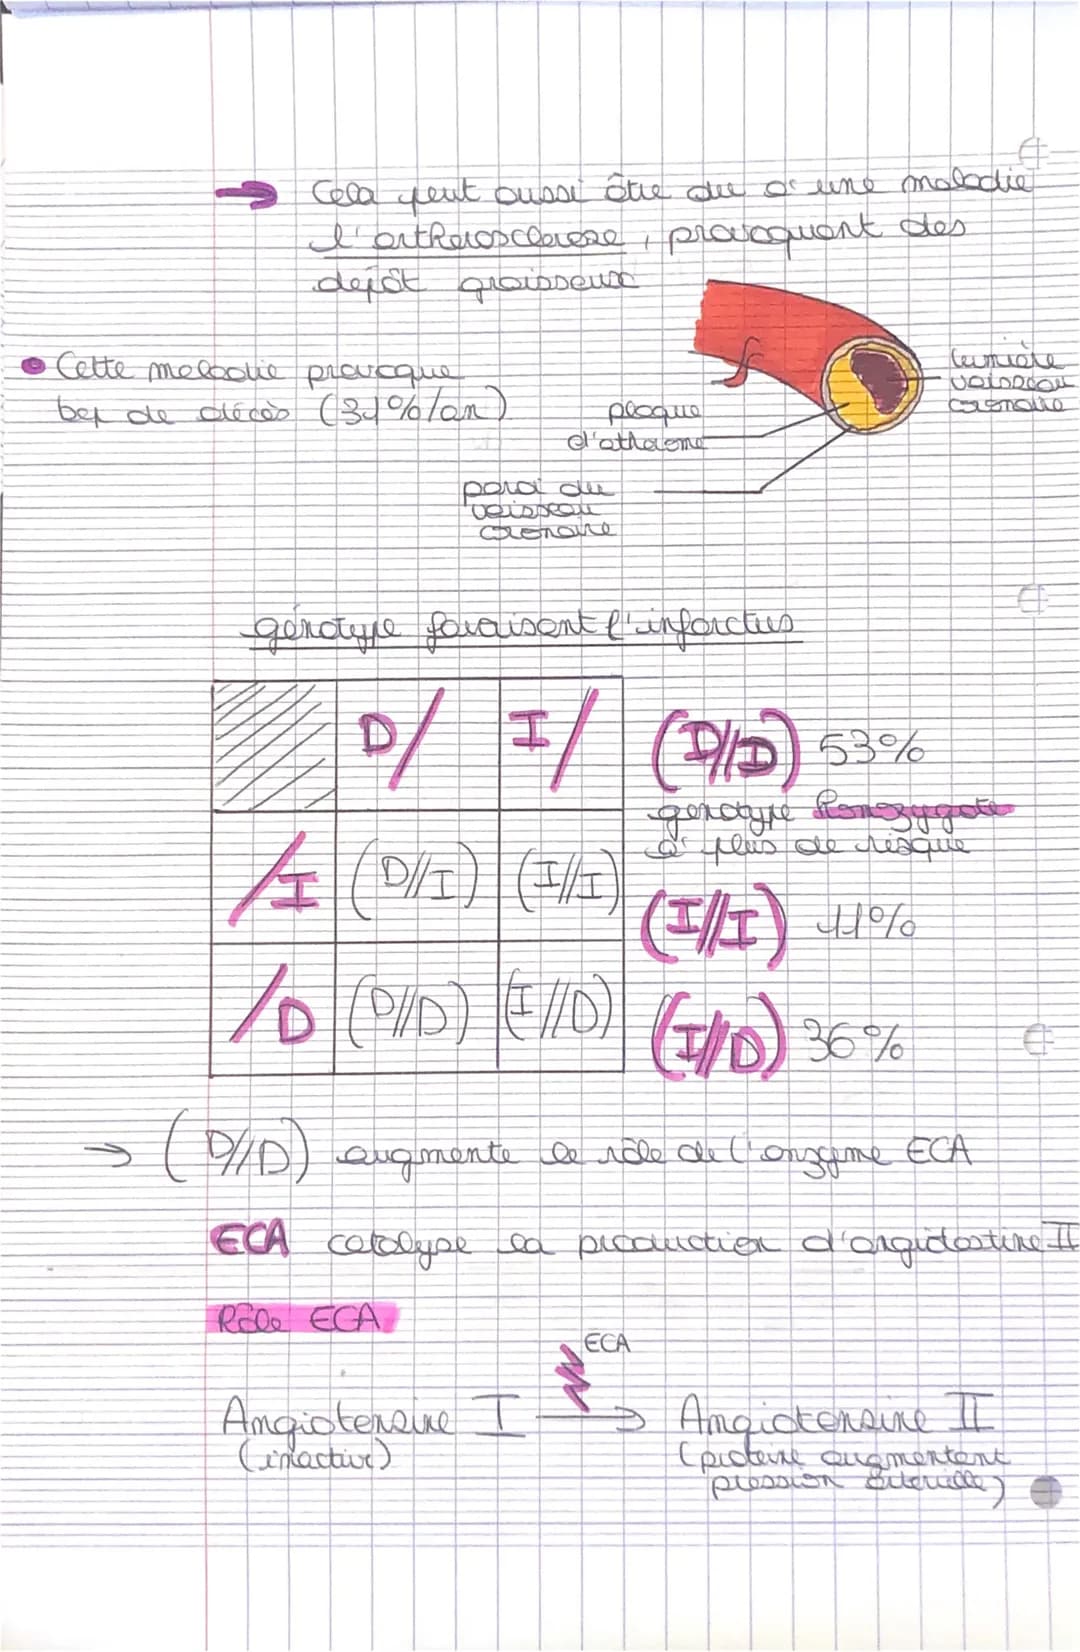 Cela peut aussi être du à une maladie
l'artherosclerose, provoquant des
dépôt graisseux
Cette maladie provoque
bcp de décès (31%/an)
lumière
vaisseau
coronaire
plaque
d'atherome
paroi du
vaisseau
coronaire
génotype favorisant l'infarctus
D/ I/
/I (D//I) (I//I)
/D (D//D) (I//D)
(D//D) 53%
génotype homozygote
à plus de risque
(I//I) 11%
(I//D) 36%
→ (D//D) augmente le rôle de l'enzyme ECA
ECA catalyse la production d'angidostine II
Rôle ECA
ECA
Angiotensine I → Angiotensine II
(inactive)
(proteine augmentent
pression artérielle)